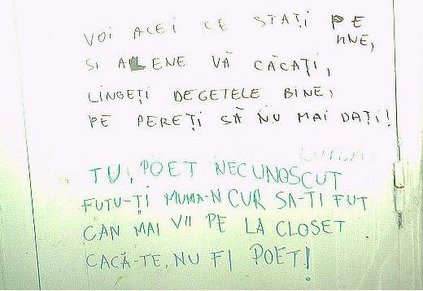 VOI ACEI CE STAȚI PE
WNE,
SI ALENE VĂ CĂCAȚI,
LINGEȚI DEGETELE BINE,
PE PEREȚI SĂ NU MAI DAȚI!
TU, POET NECUNOSCUT
FUTU-ȚI MUMA-N CUR SA-TI FUT
CAN MAI VII PE LA CLOSET
CACĂ-TE, NU FI POET!